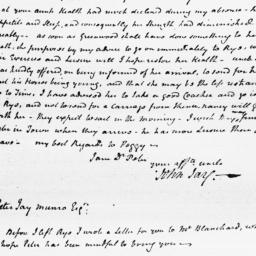 al your aunt Health had much declined during my absence - he
petite and Sleep, and consequently her Strength had diminished
eatly - as soon as Greenwood shall have done something to he
eth, she purposes by my advice to go on immediately to Rye, w
e Exercise and Leisure will I hope restore her Health - uncle
as kindly offered, on being informed of her arrival, to send for h
ut his Horses being young, and that she may be the less restrain
to Time, I have advised her to take a good Coachee and go i
Rye, and not to send for a Carriage from thence. nancy will g
with her - they expect to sail in the morning - I wish
be in Town when they arrive - he has more Leisure than
ave - my best Regards to Peggy
I am Dr Peter
your affte uncle
John Jay
Peter Jay Munro Esqr.
Before I left Rye I wrote a Letter for you to Mr Blanchard, wh
hope Peter has been mindful to bring you